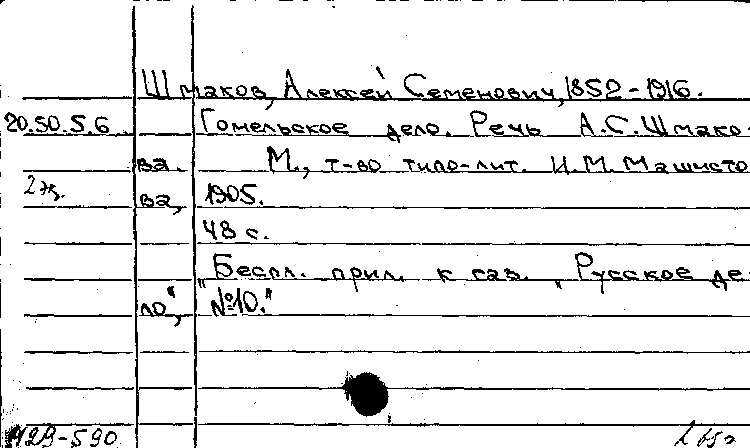 Шмаков, Алексей Семенович, 1852-1916.
20.50.5.6 Гомельское дело. Речь А.С.Шмако
ва. М., т-во типо-лит. И.М.Машисто
2 экз. ва, 1905.
48 с.
"Беспл. прил. к газ. "Русское де
ло", №10."
М29-590